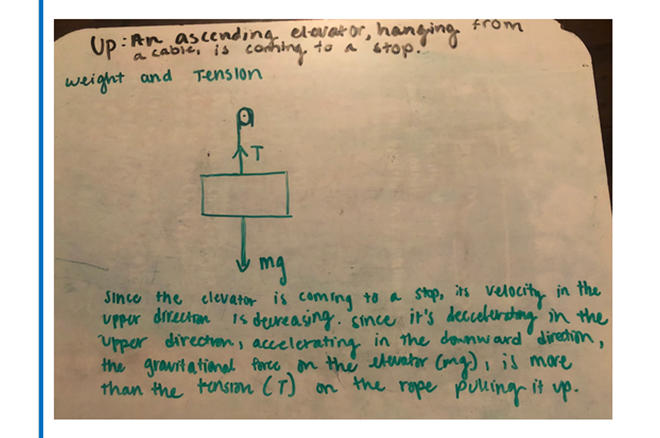 Up: An ascending elevator, hanging from
a cable, is coming to a stop.
weight and Tension
T
mg
Since the elevator is coming to a stop, its velocity in the
upper direction is decreasing. since it's deccelerating in the
upper direction, accelerating in the downward direction,
the gravitational force on the elevator (mg), is more
than the tension (T) on the rope pulling it up.